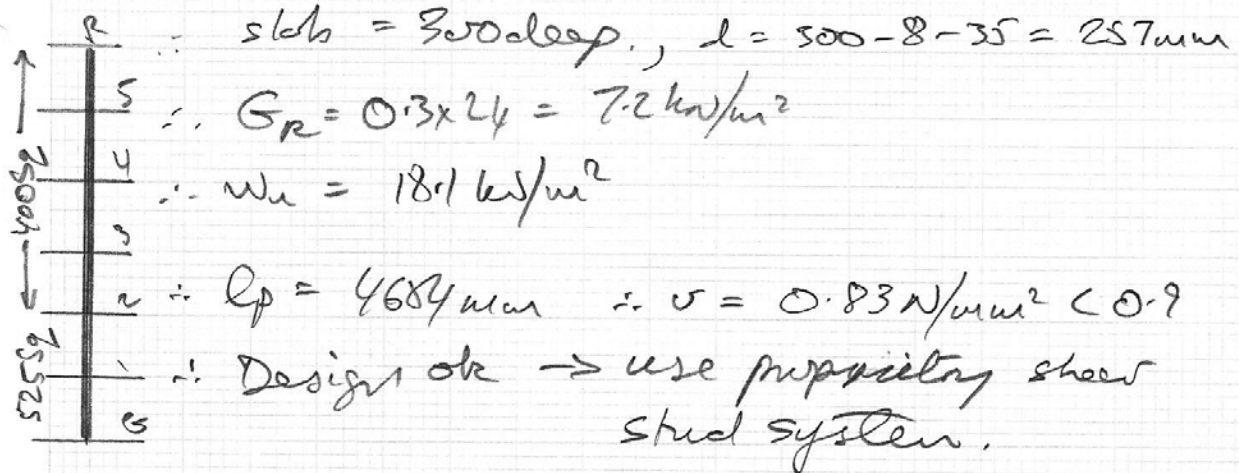 ∴ slab = 300 deep., d = 300-8-35 = 257mm
∴ GR = 0.3x24 = 7.2 kN/m²
∴ wu = 18.1 kN/m²
∴ lp = 4684mm ∴ v = 0.83 N/mm² < 0.9
∴ Design ok -> use proprietory shear
stud system.
R
5
4
3
2
1
G
400sq
525sq